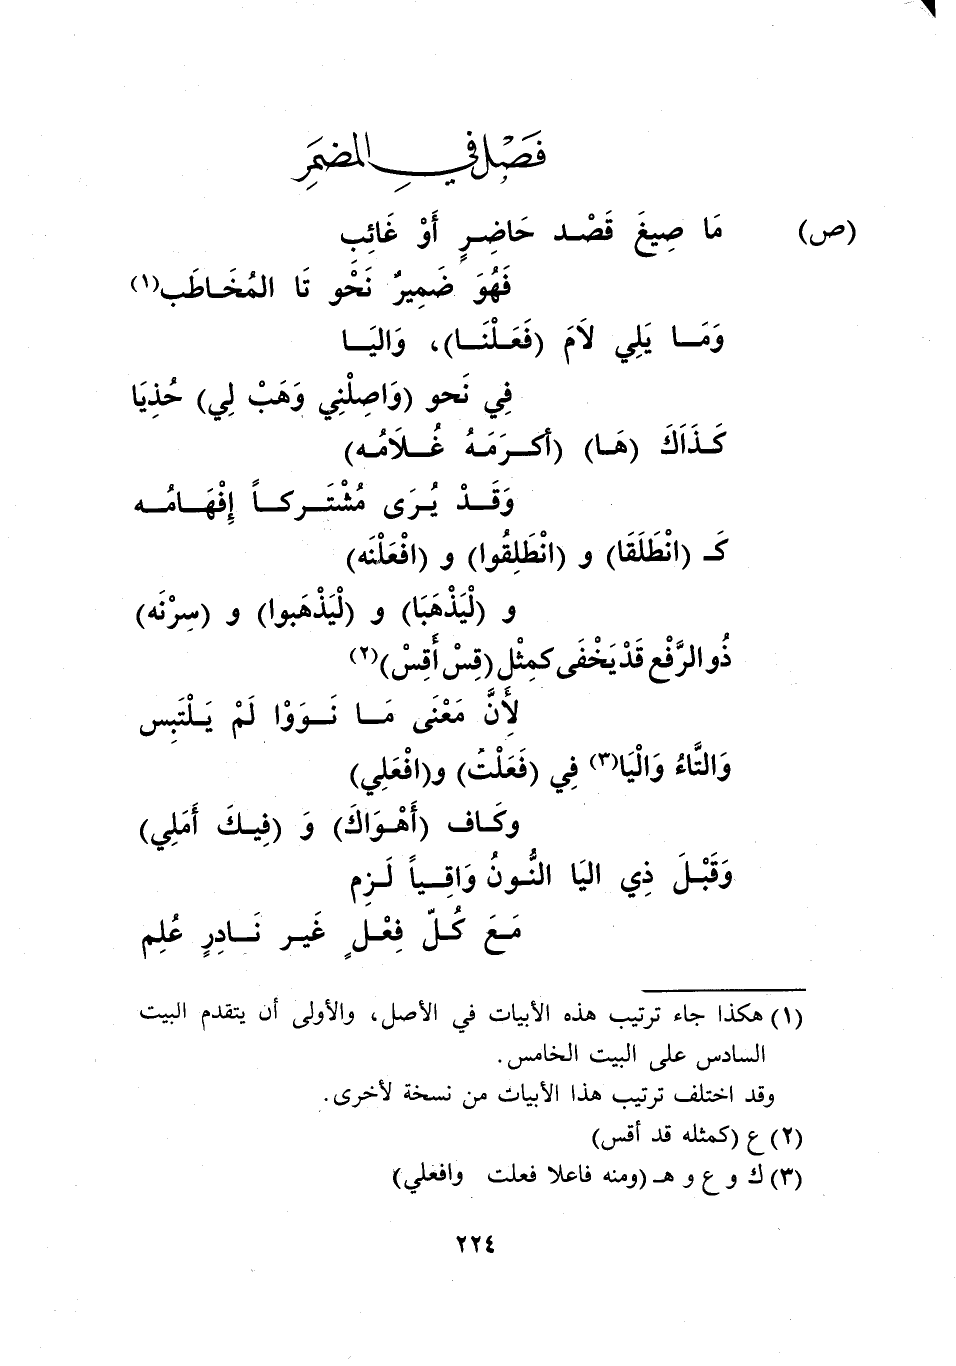 فَصْلٌ فِي المُضْمَرِ
(ص) مَا صِيغَ قَصْد حَاضِرٍ أَوْ غَائِبِ
فَهُوَ ضَمِيرٌ نَحْو تَا المُخَاطَبِ(١)
وَمَا يَلِي لاَمَ (فَعَلْنَا)، وَاليَا
فِي نَحو (وَاصِلْنِي وَهَبْ لِي) حُذِيَا
كَذَاكَ (هَا) (أكرَمَهُ غُلَامُه)
وَقَدْ يُرَى مُشْتَركاً إِفْهَامُه
كَـ (انْطَلَقَا) و (انْطَلِقُوا) و (افْعَلْنَه)
و (لْيَذْهَبَا) و (لْيَذْهَبوا) و (سِرْنَه)
ذُو الرَّفْعِ قَدْ يَخْفَى كمِثْلِ (قِسْ أَقِسْ)(٢)
لِأَنَّ مَعْنَى مَا نَوَوْا لَمْ يَلْتَبِس
وَالتَّاءُ وَالْيَا(٣) فِي (فَعَلْتُ) و(افْعَلِي)
وكَاف (أَهْوَاكَ) وَ (فِيكَ أَمَلِي)
وَقَبْلَ ذِي اليَا النُّونُ وَاقِياً لَزِم
مَعَ كُلِّ فِعْلٍ غَير نَادِرٍ عُلِم
(١) هكذا جاء ترتيب هذه الأبيات في الأصل، والأولى أن يتقدم البيت
السادس على البيت الخامس.
وقد اختلف ترتيب هذا الأبيات من نسخة لأخرى.
(٢) ع (كمثله قد أقس)
(٣) ك و ع و هـ (ومنه فاعلا فعلت وافعلي)
٢٢٤